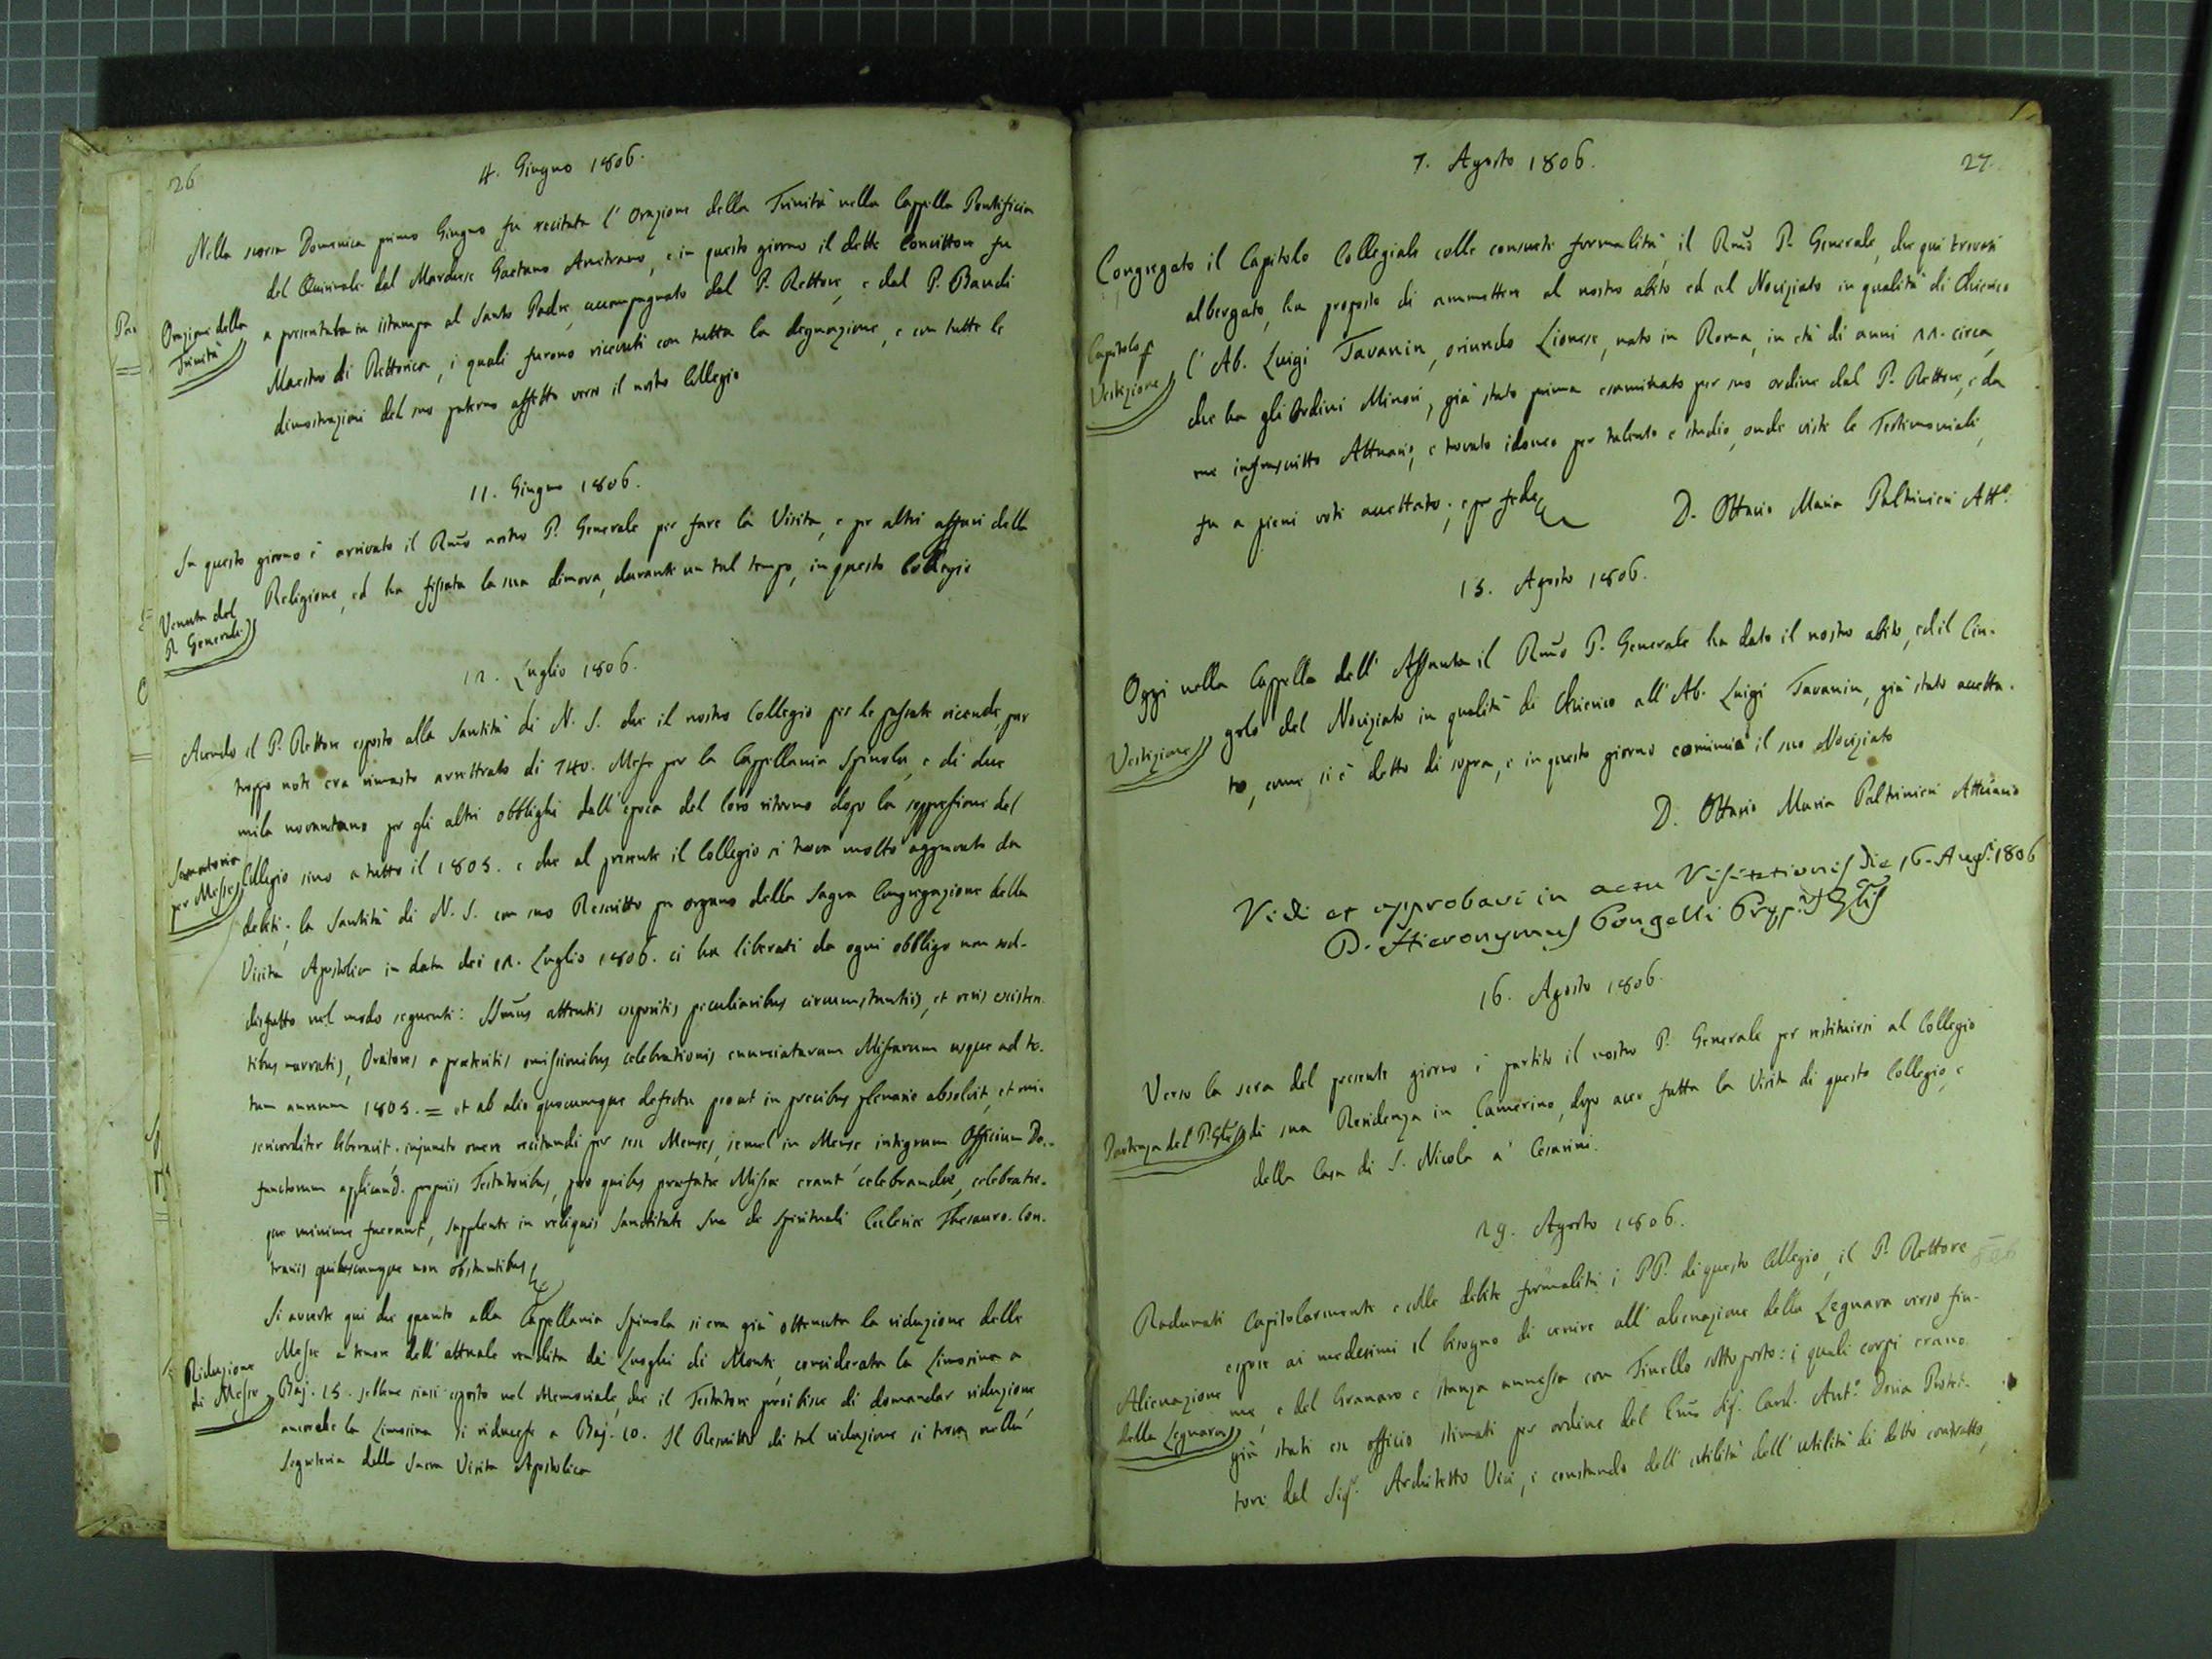 26
4. Giugno 1806.
Nella scorsa Domenica primo Giugno fu recitata l'Orazione della Trinità nella Cappella Pontificia
del Quirinale dal Marchese Gaetano Anitrano, e in questo giorno il detto Convittore fu
Orazione della
Trinità
a presentarla in istampa al Santo Padre, accompagnato dal P. Rettore, e dal P. Bandi
Maestro di Rettorica, i quali furono ricevuti con tutta la degnazione, e con tutte le
dimostrazioni del suo paterno affetto verso il nostro Collegio
11. Giugno 1806.
In questo giorno è arrivato il Rmo nostro P. Generale per fare la Visita, e per altri affari della
Religione, ed ha fissata la sua dimora, durante un tal tempo, in questo Collegio
Venuta del
P. Generale
12. Luglio 1806.
Avendo il P. Rettore esposto alla Santità di N. S. che il nostro Collegio per le passate vicende, pur
troppo note era rimasto arrettrato di 740. Messe per la Cappellania Spinola, e di due
mila novantuno per gli altri obblighi dall'epoca del loro ritorno dopo la soppressione del
Sanatoria
per Messe
Collegio sino a tutto il 1805. e che al presente il Collegio si trova molto aggravato da
debiti; la Santità di N. S. con suo Rescritto per organo della Sagra Congregazione della
Visita Apostolica in data dei 12. Luglio 1806. ci ha liberati da ogni obbligo non sod-
disfatto nel modo seguente: SSmus attentis expositis peculiaribus circumstantiis, et veris existen-
tibus narratis, Oratores a praeteritis omissionibus celebrationis enunciatarum Missarum usque ad to-
tum annum 1805. = et ab alio quocumque defectu prout in precibus plenarie absolvit, et mi-
sericorditer liberavit. injuncto onere recitandi per sex Menses, semel in Mense integrum Officium De-
functorum applicand. propriis Testatoribus, pro quibus praefatae Missae erant celebrandae, celebratae-
que minime fuerunt, supplente in reliquis Sanctitate Sua de Spirituali Ecclesiae Thesauro. Con-
trariis quibuscumque non obstantibus
Si avverte qui che quanto alla Cappellania Spinola si era già ottenuta la riduzione delle
Messe a tenore dell'attuale rendita de Luoghi di Monte, considerata la Limosina a
Riduzione
di Messe
Baj. 15. sebbene siasi esposto nel Memoriale, che il Testatore proibisce di domandar riduzione,
ancorchè la Limosina si riducesse a Baj. 10. Il Rescritto di tal riduzione si trova nella
Segreteria della Sacra Visita Apostolica
27.
7. Agosto 1806.
Congregato il Capitolo Collegiale colle consuete formalità, il Rmo P. Generale, che qui trovasi
albergato, ha proposto di ammettere al nostro abito ed al Noviziato in qualità di Chierico
Capitolo p
Vestizione
l'Ab. Luigi Tavanin, oriundo Lionese, nato in Roma, in età di anni 22. circa,
che ha gli Ordini Minori, già stato prima esaminato per suo ordine dal P. Rettore, e da
me infrascritto Attuario, e trovato idoneo per talento e studio, onde viste le Testimoniali,
fu a pieni voti accettato; e per fede
D. Ottavio Maria Paltrinieri Atto.
15. Agosto 1806.
Oggi nella Cappella dell'Assunta il Rmo P. Generale ha dato il nostro abito, ed il Cin-
golo del Noviziato in qualità di Chierico all'Ab. Luigi Tavanin, già stato accetta-
Vestizione
to, come si è detto di sopra, e in questo giorno comincia il suo Noviziato
D. Ottavio Maria Paltrinieri Attuario
Vidi et approbavi in actu Visitationis die 16. Augti 1806
D. Hieronymus Pongelli Prep.tus Glis
16. Agosto 1806.
Verso la sera del presente giorno è partito il nostro P. Generale per restituirsi al Collegio
Partenza del P. Gle
di sua Residenza in Camerino, dopo aver fatta la Visita di questo Collegio, e
della Casa di S. Nicola a' Cesarini.
29. Agosto 1806.
Radunati Capitolarmente e colle debite formalità i PP. di questo Collegio, il P. Rettore
espose ai medesimi il bisogno di venire all'alienazione della Legnara verso fiu-
Alienazione
della Legnara
me, e del Granaro e stanza annessa con Tinello sottoposto: i quali corpi erano
già stati ex officio stimati per ordine del Emo Sig. Card. Anto. Doria Protet-
tore dal Sigr. Architetto Vici, e constando dell'utilità dell'utilità di detto contratto,